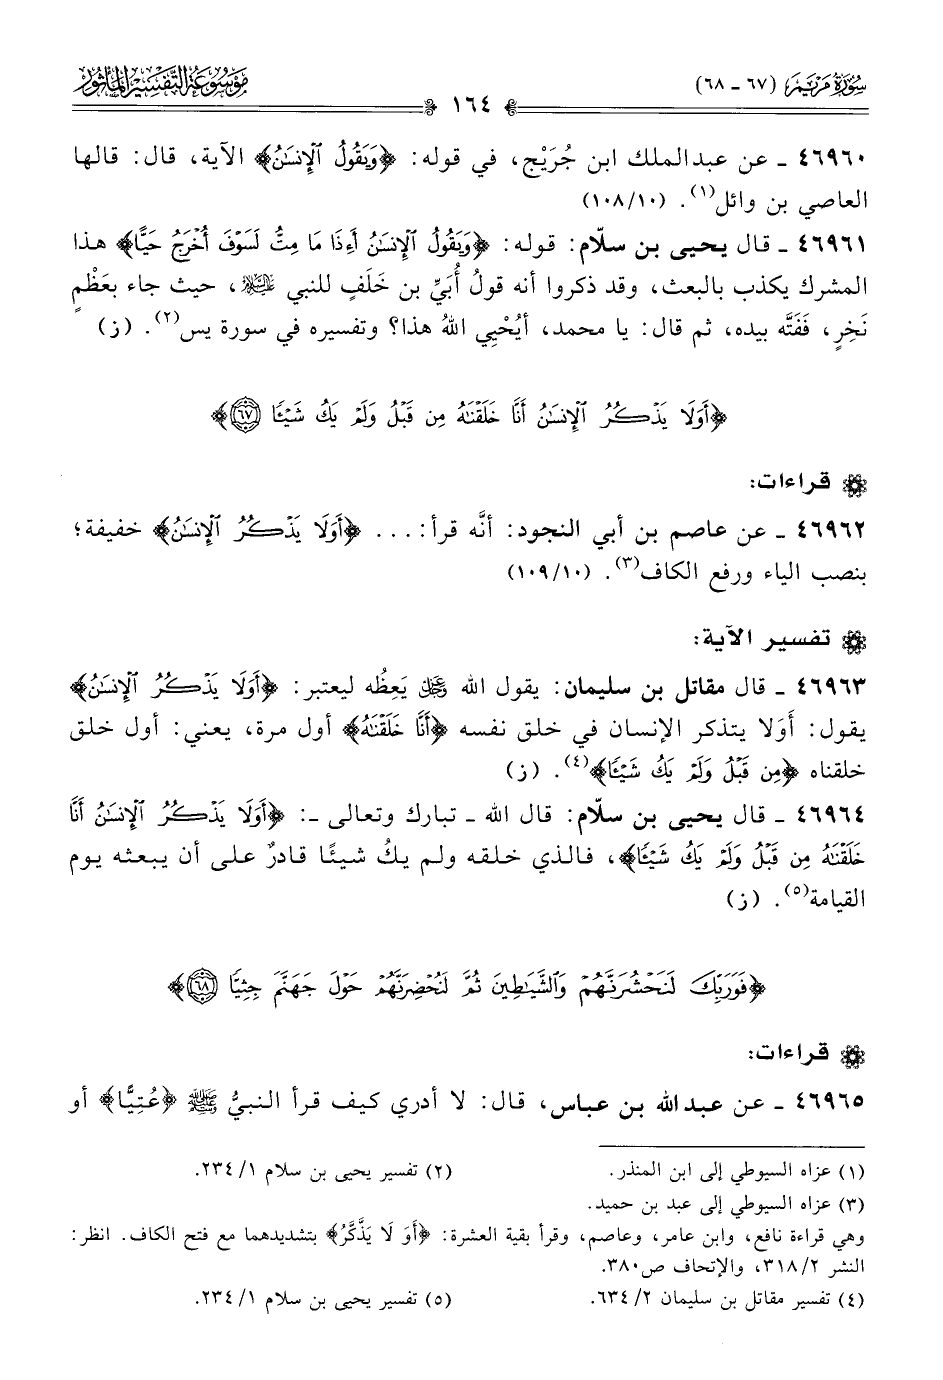 سورة مريم (٦٧ - ٦٨)
١٦٤
موسوعة التفسير المأثور
٤٦٩٦٠ - عن عبدالملك ابن جُرَيْج، في قوله: ﴿وَيَقُولُ ٱلْإِنسَٰنُ﴾ الآية، قال: قالها
العاصي بن وائل(١). (١٠٨/١٠)
٤٦٩٦١ - قال يحيى بن سلّام: قوله: ﴿وَيَقُولُ ٱلْإِنسَٰنُ أَءِذَا مَا مِتُّ لَسَوْفَ أُخْرَجُ حَيًّا﴾ هذا
المشرك يكذب بالبعث، وقد ذكروا أنه قولُ أُبَيِّ بن خَلَفٍ للنبي ﷺ، حيث جاء بعَظْمٍ
نَخِرٍ، فَفَتَّه بيده، ثم قال: يا محمد، أيُحْيِي اللهُ هذا؟ وتفسيره في سورة يس(٢). (ز)
﴿أَوَلَا يَذْكُرُ ٱلْإِنسَٰنُ أَنَّا خَلَقْنَٰهُ مِن قَبْلُ وَلَمْ يَكُ شَيْـًٔا ٦٧﴾
قراءات:
٤٦٩٦٢ - عن عاصم بن أبي النجود: أنَّه قرأ: ... ﴿أَوَلَا يَذْكُرُ ٱلْإِنسَٰنُ﴾ خفيفة؛
بنصب الياء ورفع الكاف(٣). (١٠٩/١٠)
تفسير الآية:
٤٦٩٦٣ - قال مقاتل بن سليمان: يقول الله ﷻ يَعِظُه ليعتبر: ﴿أَوَلَا يَذْكُرُ ٱلْإِنسَٰنُ﴾
يقول: أَوَلا يتذكر الإنسان في خلق نفسه ﴿أَنَّا خَلَقْنَٰهُ﴾ أول مرة، يعني: أول خلق
خلقناه ﴿مِن قَبْلُ وَلَمْ يَكُ شَيْـًٔا﴾(٤). (ز)
٤٦٩٦٤ - قال يحيى بن سلّام: قال الله - تبارك وتعالى -: ﴿أَوَلَا يَذْكُرُ ٱلْإِنسَٰنُ أَنَّا
خَلَقْنَٰهُ مِن قَبْلُ وَلَمْ يَكُ شَيْـًٔا﴾، فالذي خلقه ولم يكُ شيئًا قادرٌ على أن يبعثه يوم
القيامة(٥). (ز)
﴿فَوَرَبِّكَ لَنَحْشُرَنَّهُمْ وَٱلشَّيَٰطِينَ ثُمَّ لَنُحْضِرَنَّهُمْ حَوْلَ جَهَنَّمَ جِثِيًّا ٦٨﴾
قراءات:
٤٦٩٦٥ - عن عبدالله بن عباس، قال: لا أدري كيف قرأ النبيُّ ﷺ ﴿عُتِيًّا﴾ أو
(١) عزاه السيوطي إلى ابن المنذر. (٢) تفسير يحيى بن سلام ١/ ٢٣٤.
(٣) عزاه السيوطي إلى عبد بن حميد.
وهي قراءة نافع، وابن عامر، وعاصم، وقرأ بقية العشرة: ﴿أَوَ لَا يَذَّكَّرُ﴾ بتشديدهما مع فتح الكاف. انظر:
النشر ٢/ ٣١٨، والإتحاف ص٣٨٠.
(٤) تفسير مقاتل بن سليمان ٢/ ٦٣٤. (٥) تفسير يحيى بن سلام ١/ ٢٣٤.